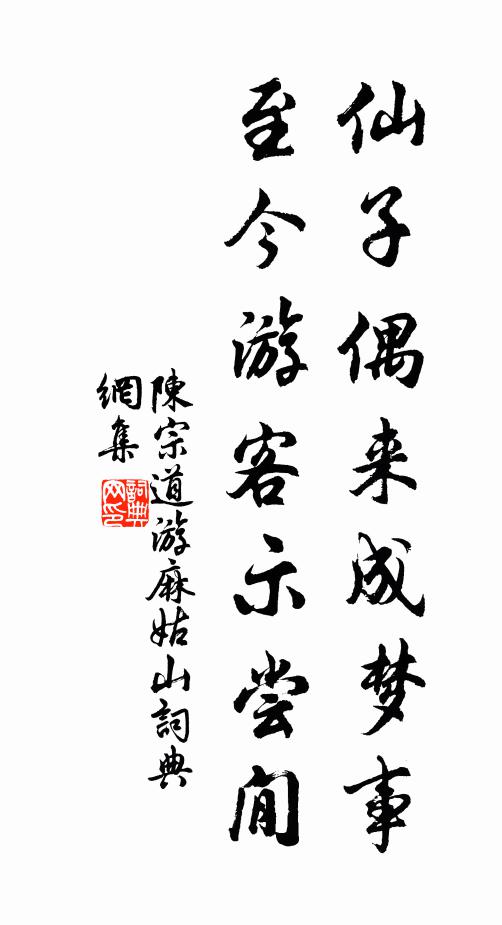 仙子偶来成梦事
至今游客示尝闲
陳宗道游麻姑山詞典
網集
詞典網印